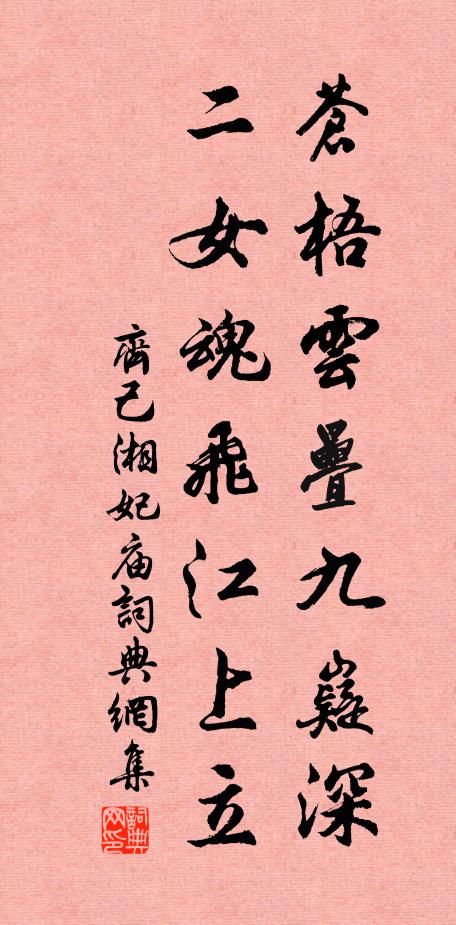 蒼梧雲疊九嶷深
二女魂飛江上立
齊己湘妃庙詞典網集
詞典网印